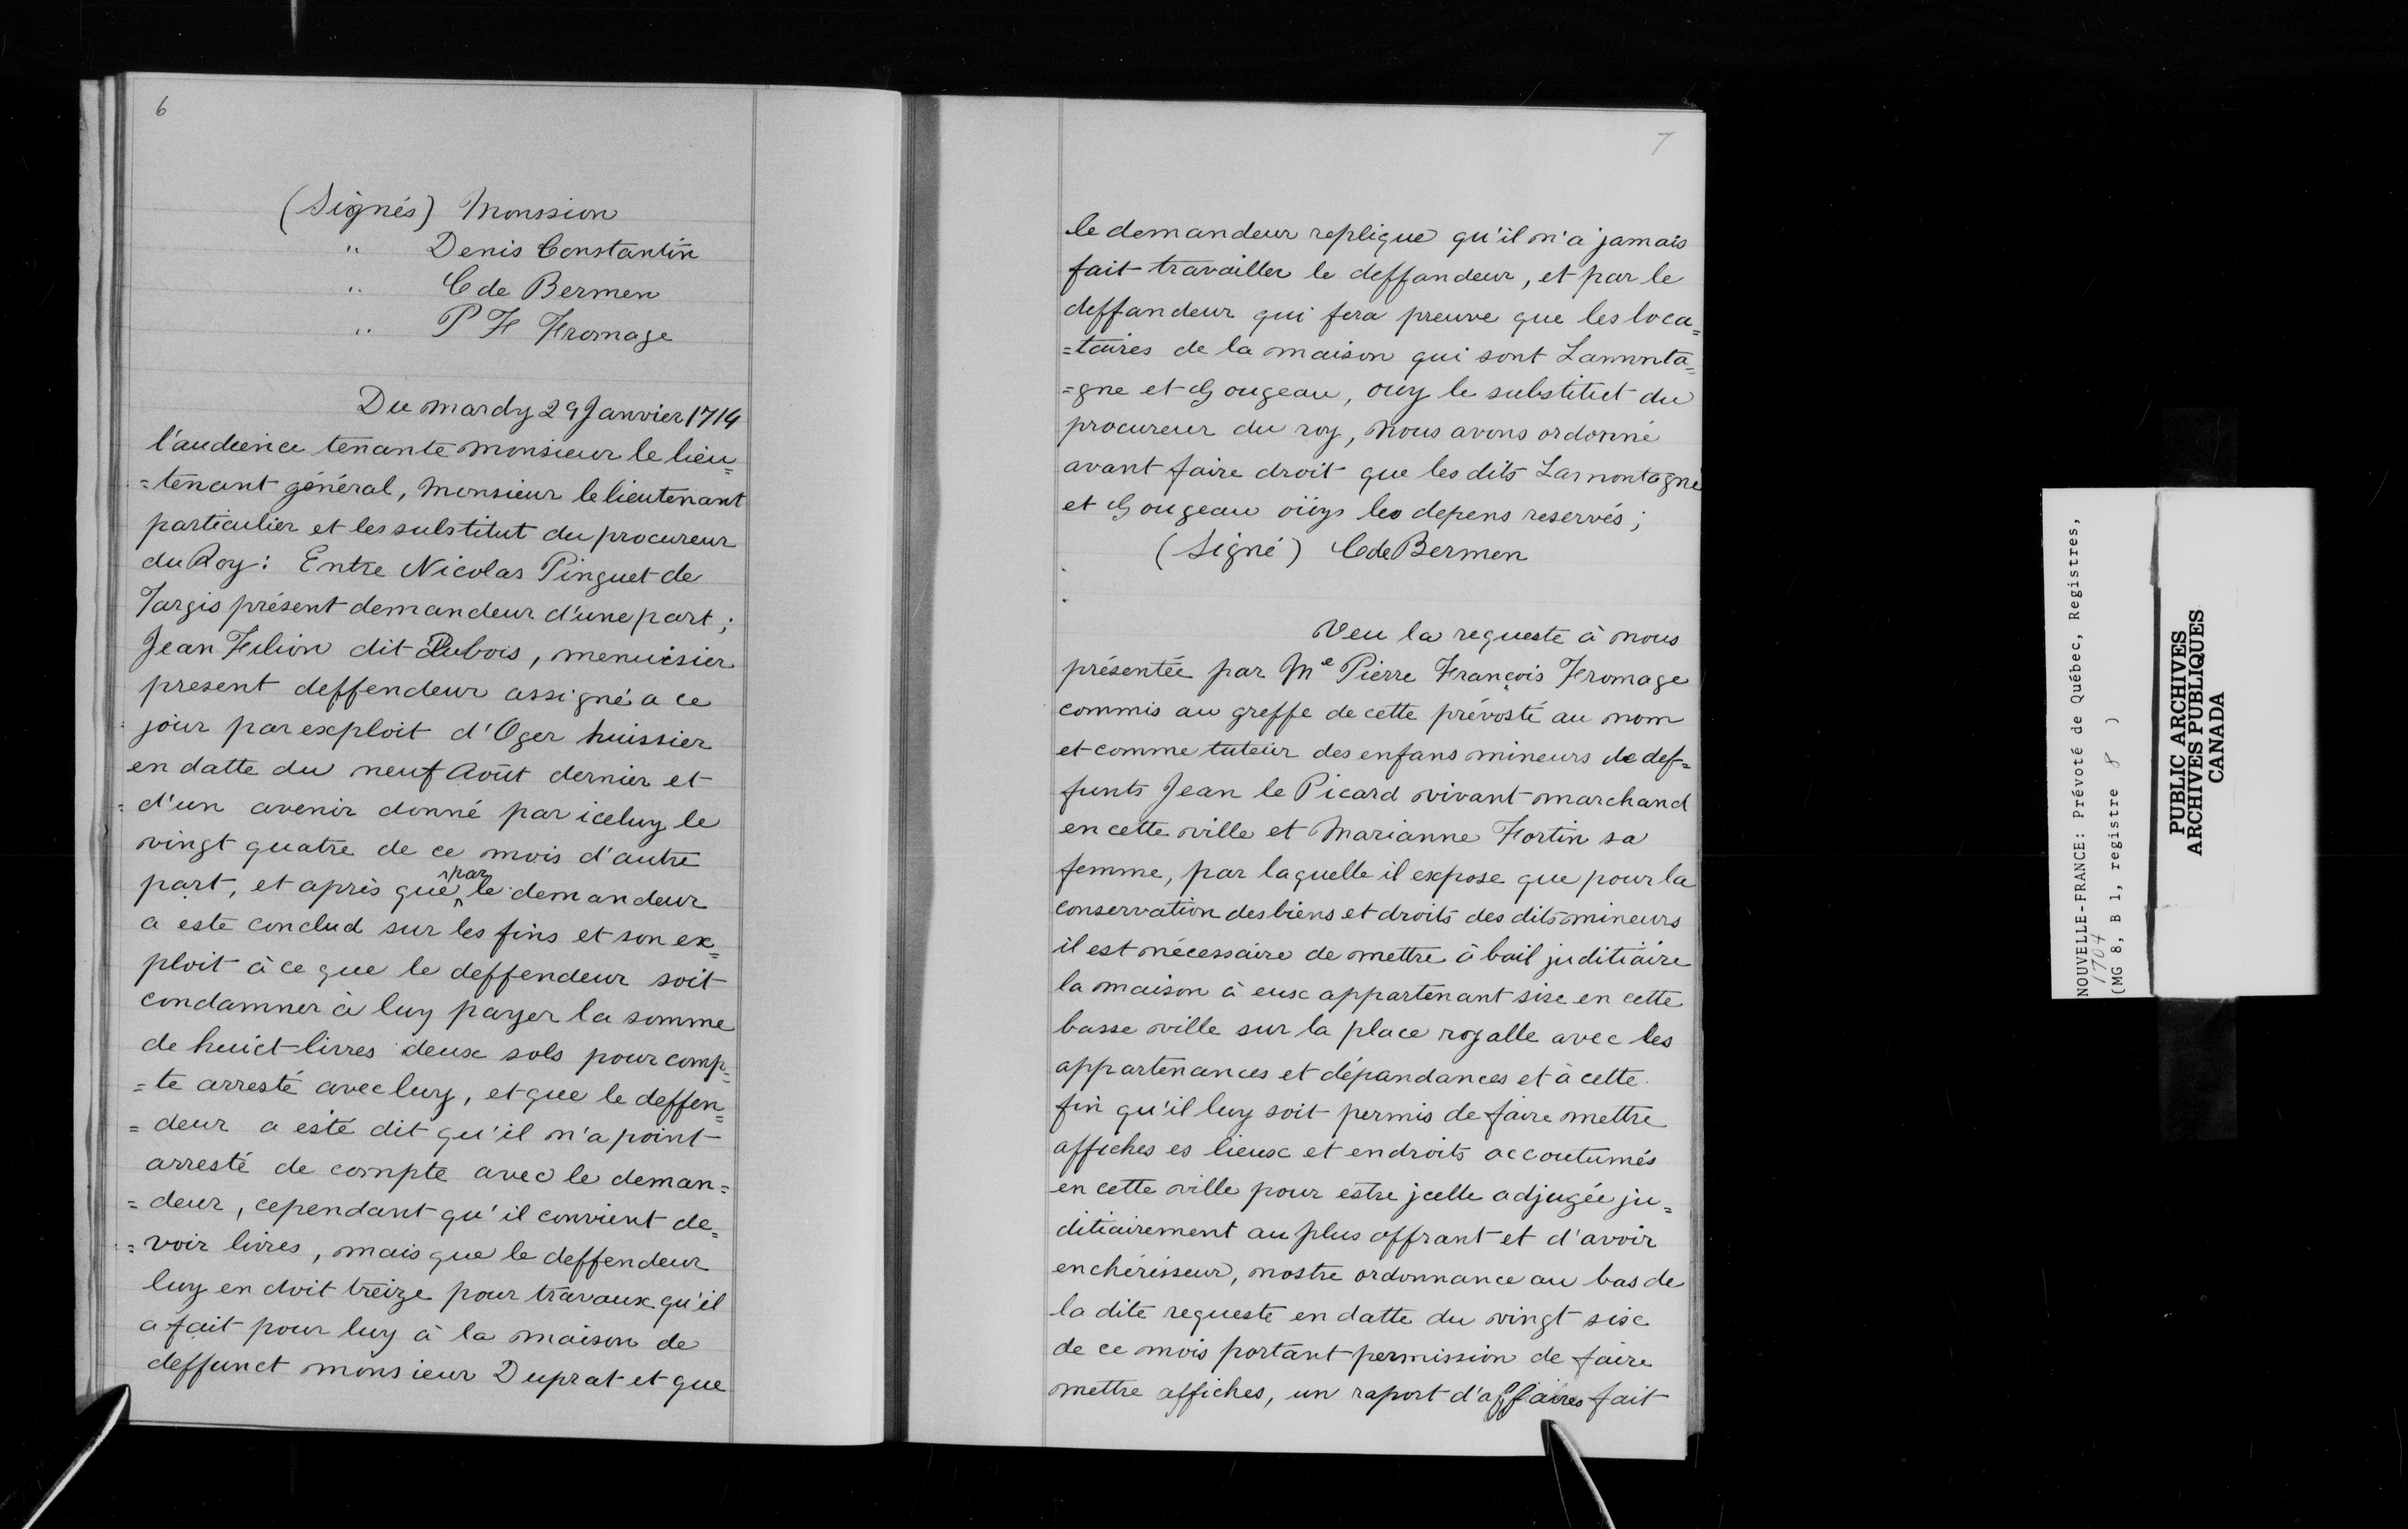 6
(Signés) Moussion
" Denis Constantin
" C de Bermen
" P F Fromage
Du mardy 29 Janvier 1714
l'audience tenante monsieur le lieu=
=tenant général, monsieur le lieutenant
particulier et les substitut du procureur
du Roy: Entre Nicolas Pinguet de
Targis présent demandeur d'une part;
Jean Filion dit Dubois, menuisier
present deffendeur assigné a ce
jour par exploit d'Oger huissier
en datte du neuf Août dernier et
d'un avenir donné par iceluy le
vingt quatre de ce mois d'autre
part, et après que par le demandeur
a esté conclud sur les fins et son ex=
ploit à ce que le deffendeur soit
condamner à luy payer la somme
de huict livres deux sols pour comp=
=te arresté avec luy, et que le deffen=
=deur a esté dit qu'il n'a point
arresté de compte avec le deman=
=deur, cependant qu'il convient de=
=voir livres, mais que le deffendeur
luy en doit treize pour travaux qu'il
a fait pour luy à la maison de
deffunct monsieur Duprat et que
7
le demandeur replique qu'il n'a jamais
fait travailler le deffandeur, et par le
deffandeur qui fera preuve que les loca=
=taires de la maison qui sont Lamonta=
=gne et Gougeau, ouy le substitut du
procureur du roy, nous avons ordonné
avant faire droit que les dits Lamontagne
et Gougeau oüys les depens reservés;
(Signé) C de Bermen
Veu la requeste à nous
présentée par Me Pierre François Fromage
commis au greffe de cette prévosté au nom
et comme tuteur des enfans mineurs de def=
funts Jean le Picard vivant marchand
en cette ville et Marianne Fortin sa
femme, par laquelle il expose que pour la
conservation des biens et droits des dits mineurs
il est nécessaire de mettre à bail juditiaire
la maison à eux appartenant sise en cette
basse ville sur la place royalle avec les
appartenances et dépandances et à cette
fin qu'il luy soit permis de faire mettre
affiches es lieux et endroits accoutumés
en cette ville pour estre jcelle adjugée ju=
ditiairement au plus offrant et d'avoir
enchérisseur, nostre ordonnance au bas de
la dite requeste en datte du vingt six
de ce mois portant permission de faire
mettre affiches, un raport d'affaires fait
NOUVELLE-FRANCE: Prévoté de Québec, Registres,
1704
(MG 8, B 1, registre 8 )
PUBLIC ARCHIVES
ARCHIVES PUBLIQUES
CANADA